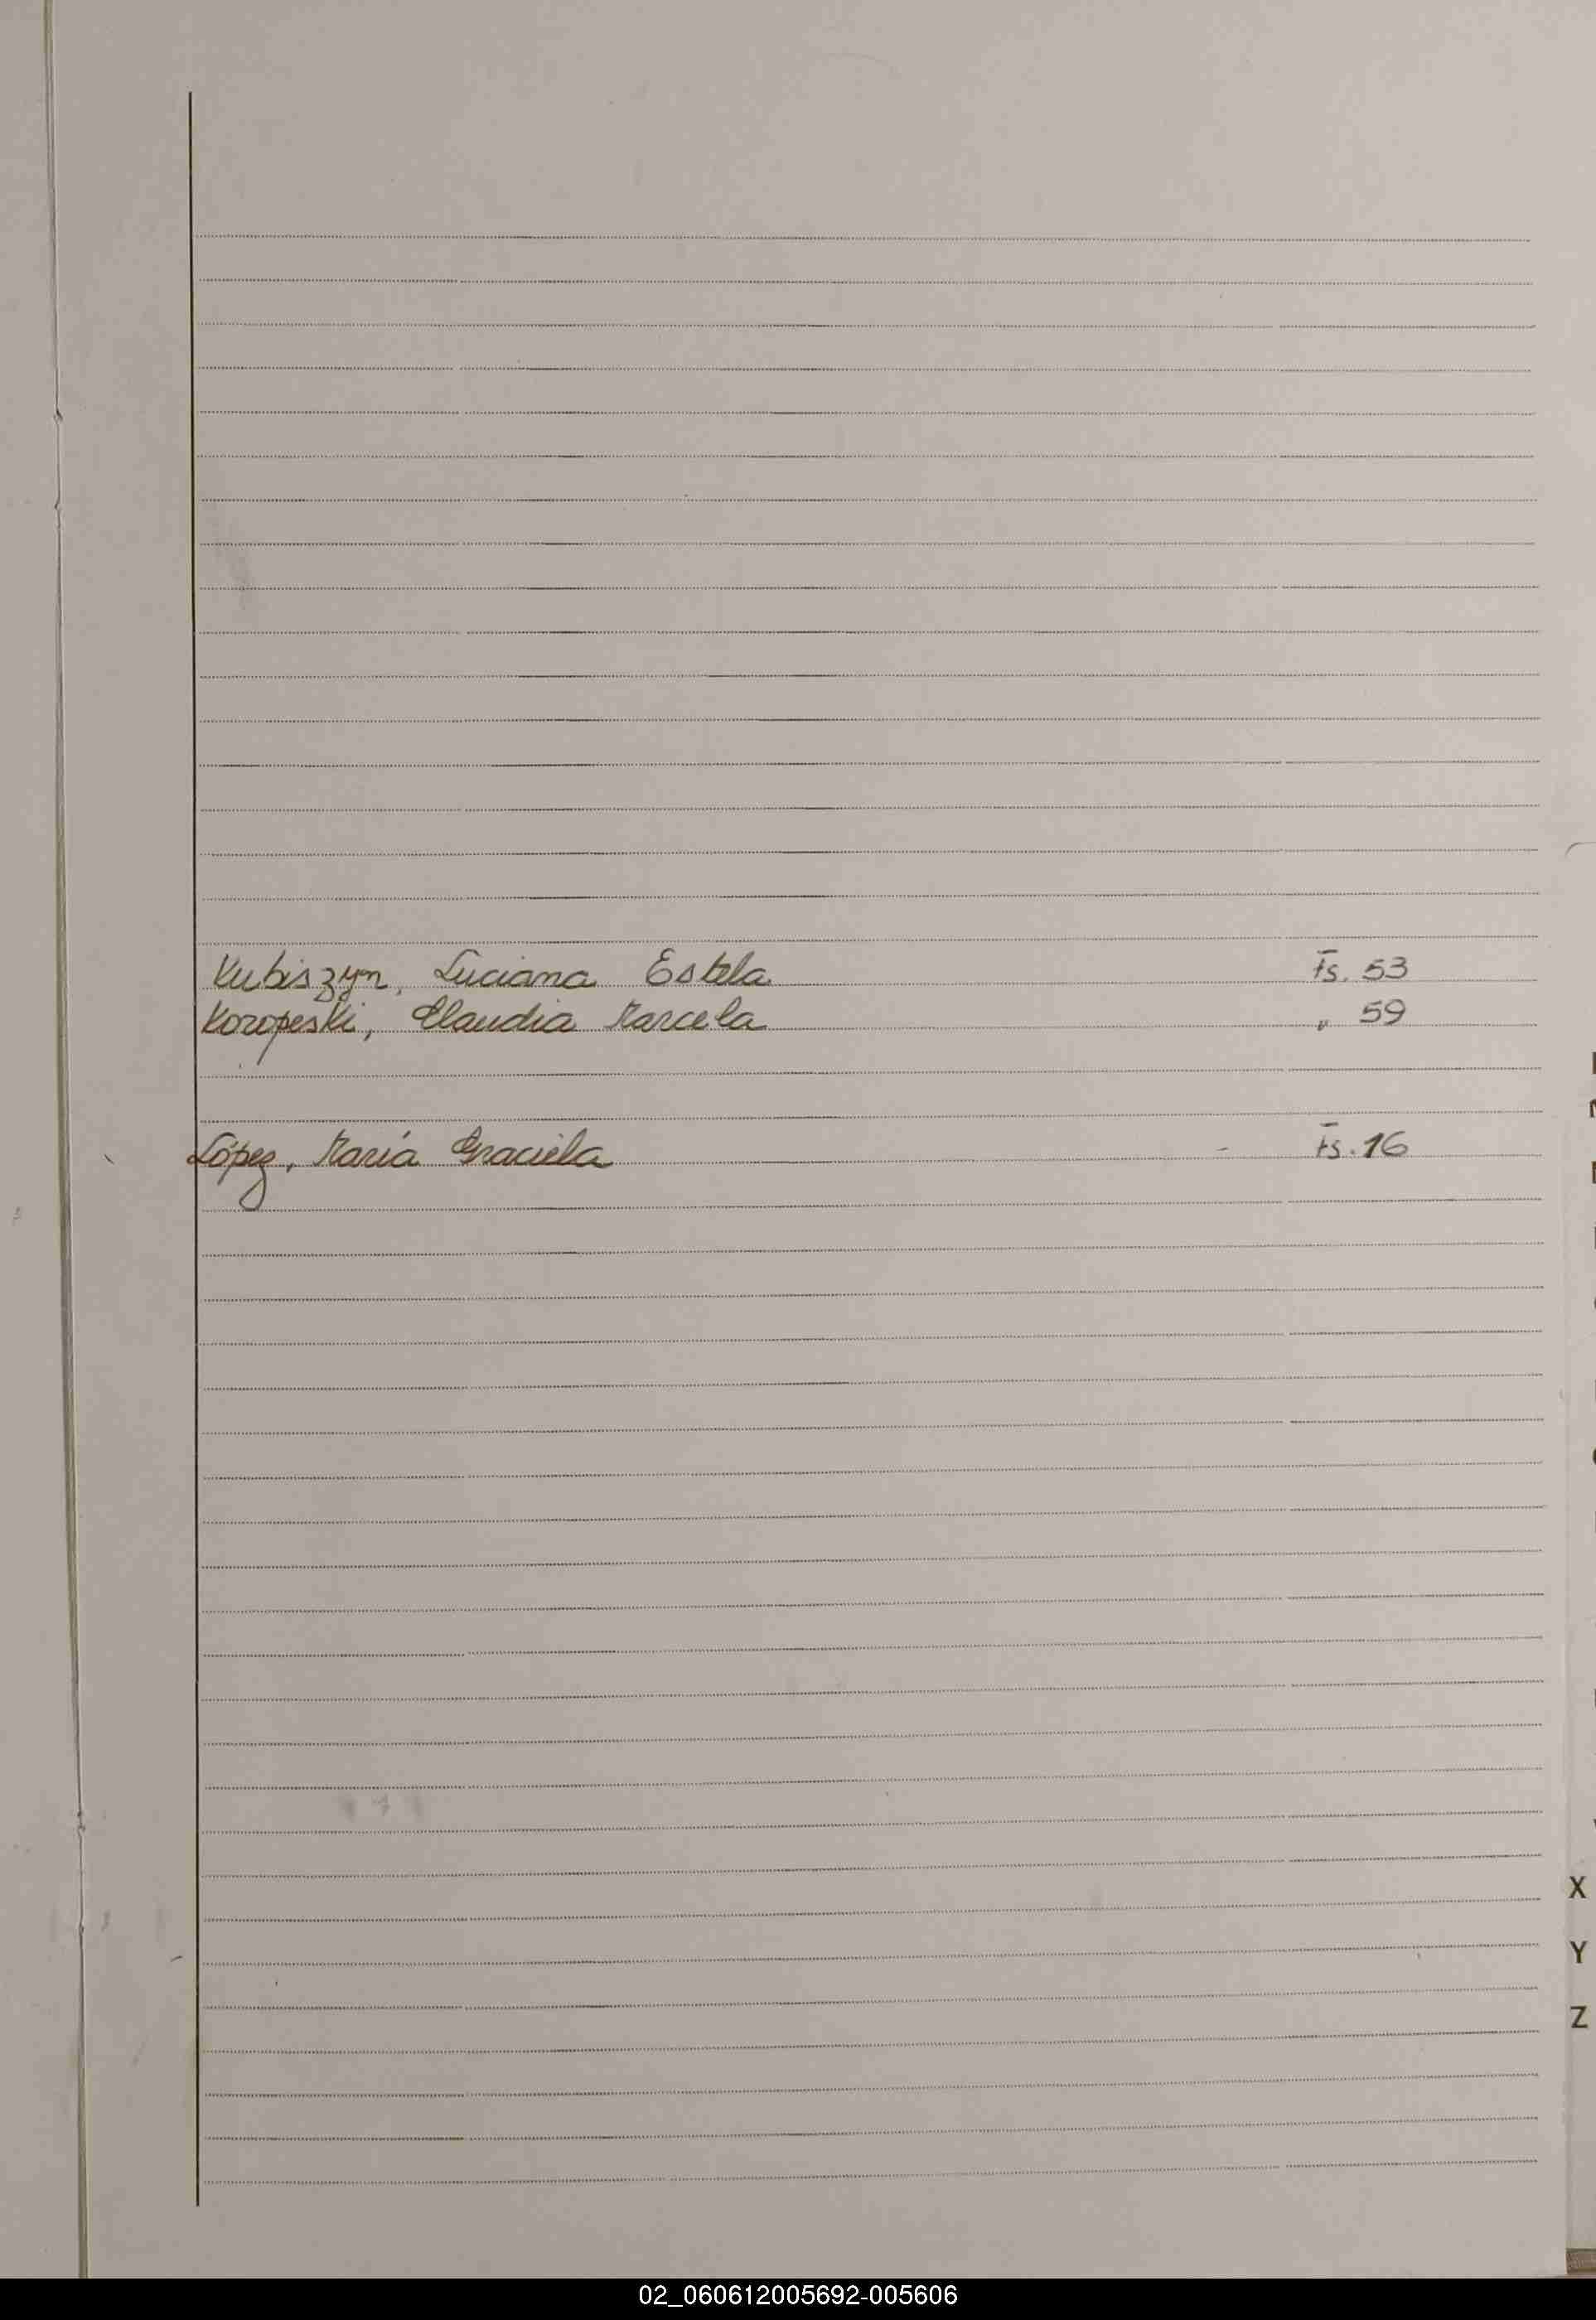 Kubiszyn, Luciana Estela Fs. 53
Koropeski, Claudia Marcela " 59
López, María Graciela - Fs. 16
X
Y
Z
02_060612005692-005606